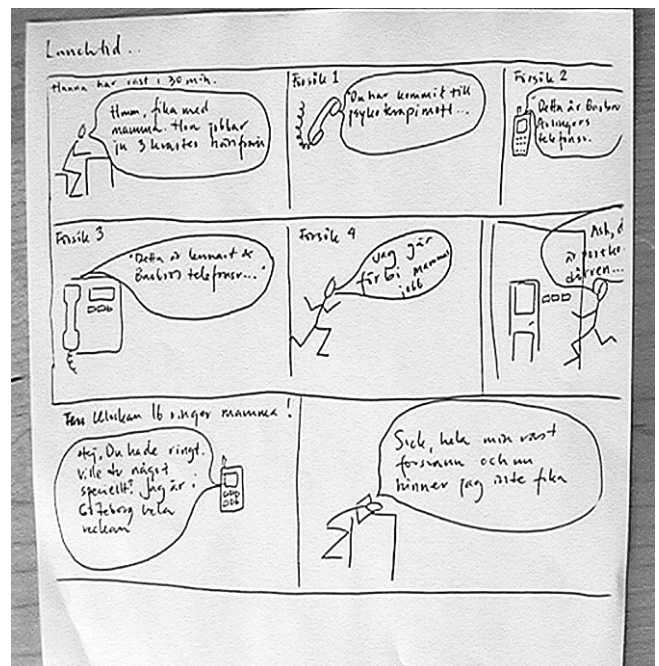 Lunchtid...
Hanna har rast i 30 min.
Hmm, fika med
mamma. Hon jobbar
ju 3 kvarter härifrån
Försök 1
"Du har kommit till
psykoterapimott...
Försök 2
Detta är Barbro
telefonsv.
Försök 3
"Detta är Lennart &
Barbros telefonsv..."
Försök 4
Jag går
förbi mammas
jobb
Ash, d
är portko
dörren...
Klockan 16 ringer mamma!
Hej, Du hade ringt.
ville du något
speciellt? Jag är i
Göteborg hela
veckan
Suck, hela min rast
försvann och nu
hinner jag inte fika